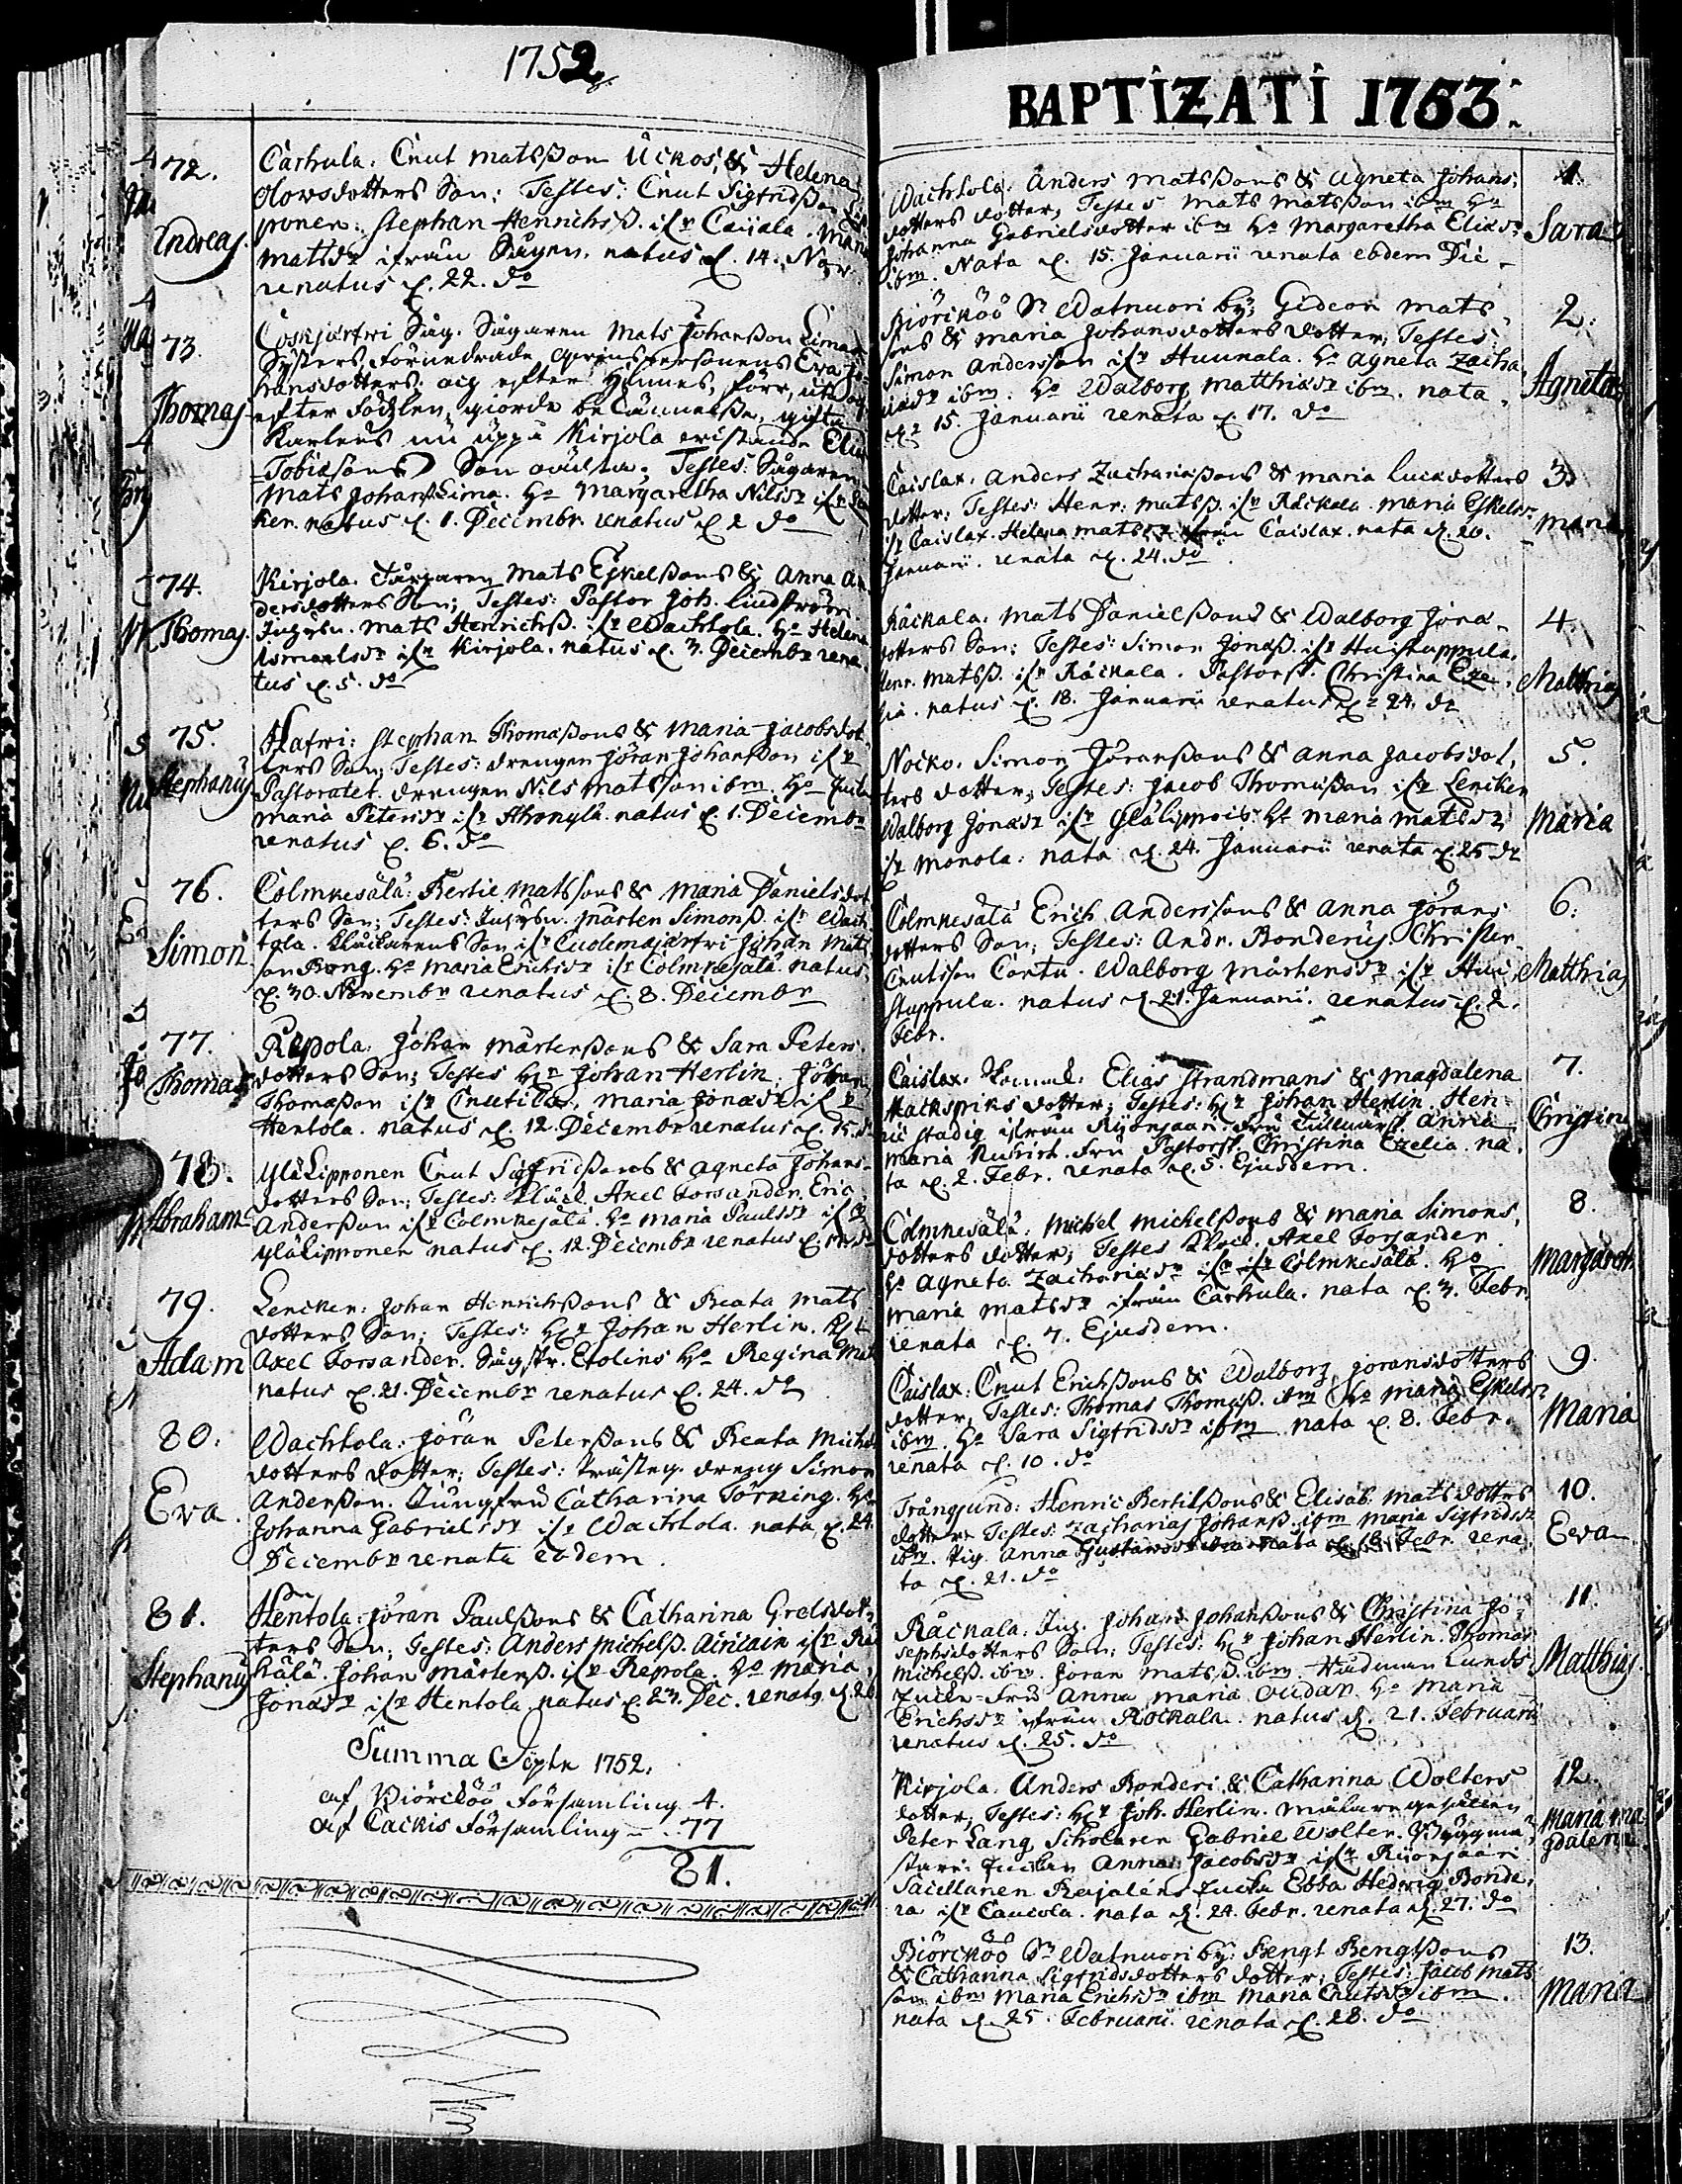 1752
72.
Andreas.
Carhula. Cnut Matsßon Uckos, & Helena
Olovsdotters Son; Testes: Cnut Sigfridsson
ponen: Stephan Henrichsß. ifr Caijala. Maria
Matsdr ifrån Sågen. natus d. 14. Nov.
renatus d. 22. do
73.
Thomas.
Coskijärfwi Såg. Sågaren Mats Johanßon Lima
Systers, förnedrade qwinspersonens Eva Jo-
hansdotters
efter födslen, giorde bekännelße, gifta
Karlens nu uppå Kirjola Elias
Tobiæsons Son oäckta. Testes: Sågaren
Mats Johanß Lima. Ha Margaretha Nilsdr ifr
ken. natus d. 1. Decembr. renatus d. 2 do
74.
Thomas.
Kirjola. Mats Eskelßons & Anna An
dersdotters Son; Testes: Pastor Joh. Lindström
Mats Henrichß. ifr Wachtola. Ho Helena
Ismaelsdr ifr Kirjola. natus d. 3. Decembr rena
tus d. 5. do
75.
Stephanus
Hatwi: Stephan Thomaßons & Maria Jacobsdot
ters Son; Testes: drengen Jöran Johanßon ifr
Pastoratet. drengen Nils Matsson ibm. Ho
Maria Petersdr ifr natus d. 1. Decembr
renatus d. 6. do
76.
Simon.
Colmkesälä: Bertil Matssons & Maria Danielsdot
ters Son; Testes: Mårten Simonß. ifr Wach
tola. Klåckarens Son ifr Cuolemajärfwi Johan Mats
son Rong. Ho Maria Erichsdr ifr Colmkesälä. natus
d. 30. Novembr renatus d. 8. Decembr
77.
Thomas
Repola. Johan Mårtenßons & Sara Peters
dotters Son; Testes Hr Johan Herlin. Johan
Thomaßon ifr Cnutila, Maria Jonædr ifr
Hentola. natus d. 12. Decembr renatus d. 15. do
78.
Abraham
Yläkipponen Cnut Sigfridßons & Agneta Johans-
dotters Son; Testes: Klåck. Axel Forsander. Eric
Anderßon ifr Colmkesälä. Ho Maria Paulsdr ifr
Yläkipponen natus d. 12. Decembr renatus d.
79.
Adam
Lencker: Johan Henrichßons & Beata Mats
dotters Son; Testes: Hr Johan Herlin. Kl:
Axel Forsander. Sågstr. Etolins Ho Regina Mat
natus d. 21. Decembr renatus d. 24. do
80.
Eva.
Wachtola: Jöran Peterßons & Beata Michels
dotters dotter; Testes: Prästeg. dreng Simon
Anderßon. Jungfru Catharina Törning. Ho
Johanna Gabrielsdr ifr Wachtola. nata d. 24.
Decembr renata eodem.
81.
Stephanus
Hentola: Jöran Paulßons & Catharina Grelsdot-
ters Son; Testes: Anders Michelß. Airicain ifr Rä
kälä. Johan Mårtenß. ifr Repola. Ho Maria
Jonædr ifr Hentola natus d. 23. Dec. renats d. 26
Summa Döpte 1752.
af Biörcköö Församling 4.
af Cackis Församling - 77
81.
BAPTIZATI 1753.
1.
Sara
Wachtola. Anders Matsßons & Agneta Johans,
dotters dotter, Testes Mats Matsßon ibm Ho
Johanna Gabrielsdotter ibm Ho Margaretha Eliædr
ibm. Nata d. 15. Januarii renata eodem Die
2.
Agneta
Biörcköö Sn Watnuori by; Gideon Mats-
sons & Maria Johansdotters dotter, Testes:
Simon Andersson ifr Humala. Ho Agneta Zacha
riædr ibm. Ho Walborg Matthiædr ibm. nata
d. 15 Januarii renata d. 17. do
3.
Maria
Caislax. Anders Zachariæßons & Maria Lucædotters
dotter; Testes: Henr. Matsß. ifr Räckala. Maria Eskelsdr
ifr Caislax. Helena Matsdr ifrån Caislax. nata d. 20.
Januarii. renata d. 24. do
4.
Matthias
Räckala. Mats Danielßons & Walborg Jonæ-
dotters Son; Testes: Simon Jonæß. ifr Huistuppula.
Henr. Matsß. ifr Räckala. Pastorsf. Christina Eze-
lia. natus d. 18. Januarii renatus d. 24. do
5.
Maria
Nocko. Simon Jöranßons & Anna Jacobsdot,
ters dotter; Testes: Jacob Thomæßon ifr Lencker
Walborg Jonædr ifr Yläkipponen Ho Maria Matsdr
ifr Monola: nata d. 24. Januarii renata d. 25 do
6.
Matthias
Colmkesälä Erich Anderssons & Anna Jörans
dotters Son; Testes: Andr. Bonderus. Christer
Cnutsson Contu. Walborg Mårtensdr ifr Hui,
stuppula. natus d. 21. Januarii. renatus d. 2.
Febr.
7.
Christina
Caislax. Elias Strandmans & Magdalena
Mackspiks dotter; Testes: Hr Johan Herlin. Hen
ric Stadig ifrån Kijonsaari. Fru Tullnärsk. Anna
Maria Fru Pastorsk. Christina Ezelia. na.
ta d. 2. Febr. renata d. 5. Ejusdem.
8.
Margareth.
Colmkesälä. Michel Michelßons & Maria Simons,
dotters dotter; Testes Klock. Axel Forsander
Ho Agneta Zachariædr ifr ifr Colmkesälä. Ho
Maria Matsdr ifrån Carhula. nata d. 3. Febr.
renata d. 7. Ejusdem.
9.
Maria
Caislax: Cnut Erichßons & Walborg Joransdotters
dotter, Testes: Thomas Thomæß. ibm Ho Maria Eskelsdr
ibm. Ho Sara Sigfridsdr ibm nata d. 8. Febr.
renata d. 10. do
10.
Eva
Trångsund: Henric Bertilßons & Elisab. Matsdotters
dotter Testes: Zacharias Johanß. ibm Maria Sigfridsdr
ibm. Pig. Anna Gustavsdr ibm nata d. 18 Febr. rena
ta d. 21. do
11.
Matthias.
Räckala. Johan Johanßons & Christina Jo-
sephsdotters Son; Testes: Hr Johan Herlin. Thomas
Michelß. ibm. Jöran Matsß. ibm. Lunds
Fru Anna Maria Ho Maria
Erichsdr ifrån Rockala. natus d. 21. Februarii
renatus d. 25. do
12.
Maria Ma
gdalena.
Kirjola. Anders Bonderi & Catharina Wolters
dotter, Testes: Hr Joh. Herlin. Målaregesällen
Peter Lang. Scholaren Gabriel Wolter. Byggmä-
stare: Anna Jacobsdr ifr Kiionsaari
Sacellanen Rajaléns Ebba Hedwig Bonde,
ra ifr Caucola. nata d. 24. Febr. renata d. 27. do
13.
Maria
Biörcköö Sn Watnuori by; Bengt Bengtßons
& Catharina Sigfridsdotters dotter; Testes: Jacob Mats
son ibm Maria Erichsdr ibm Maria Cnutsdr ibm.
nata d. 25. Februarii. renata d. 28. do